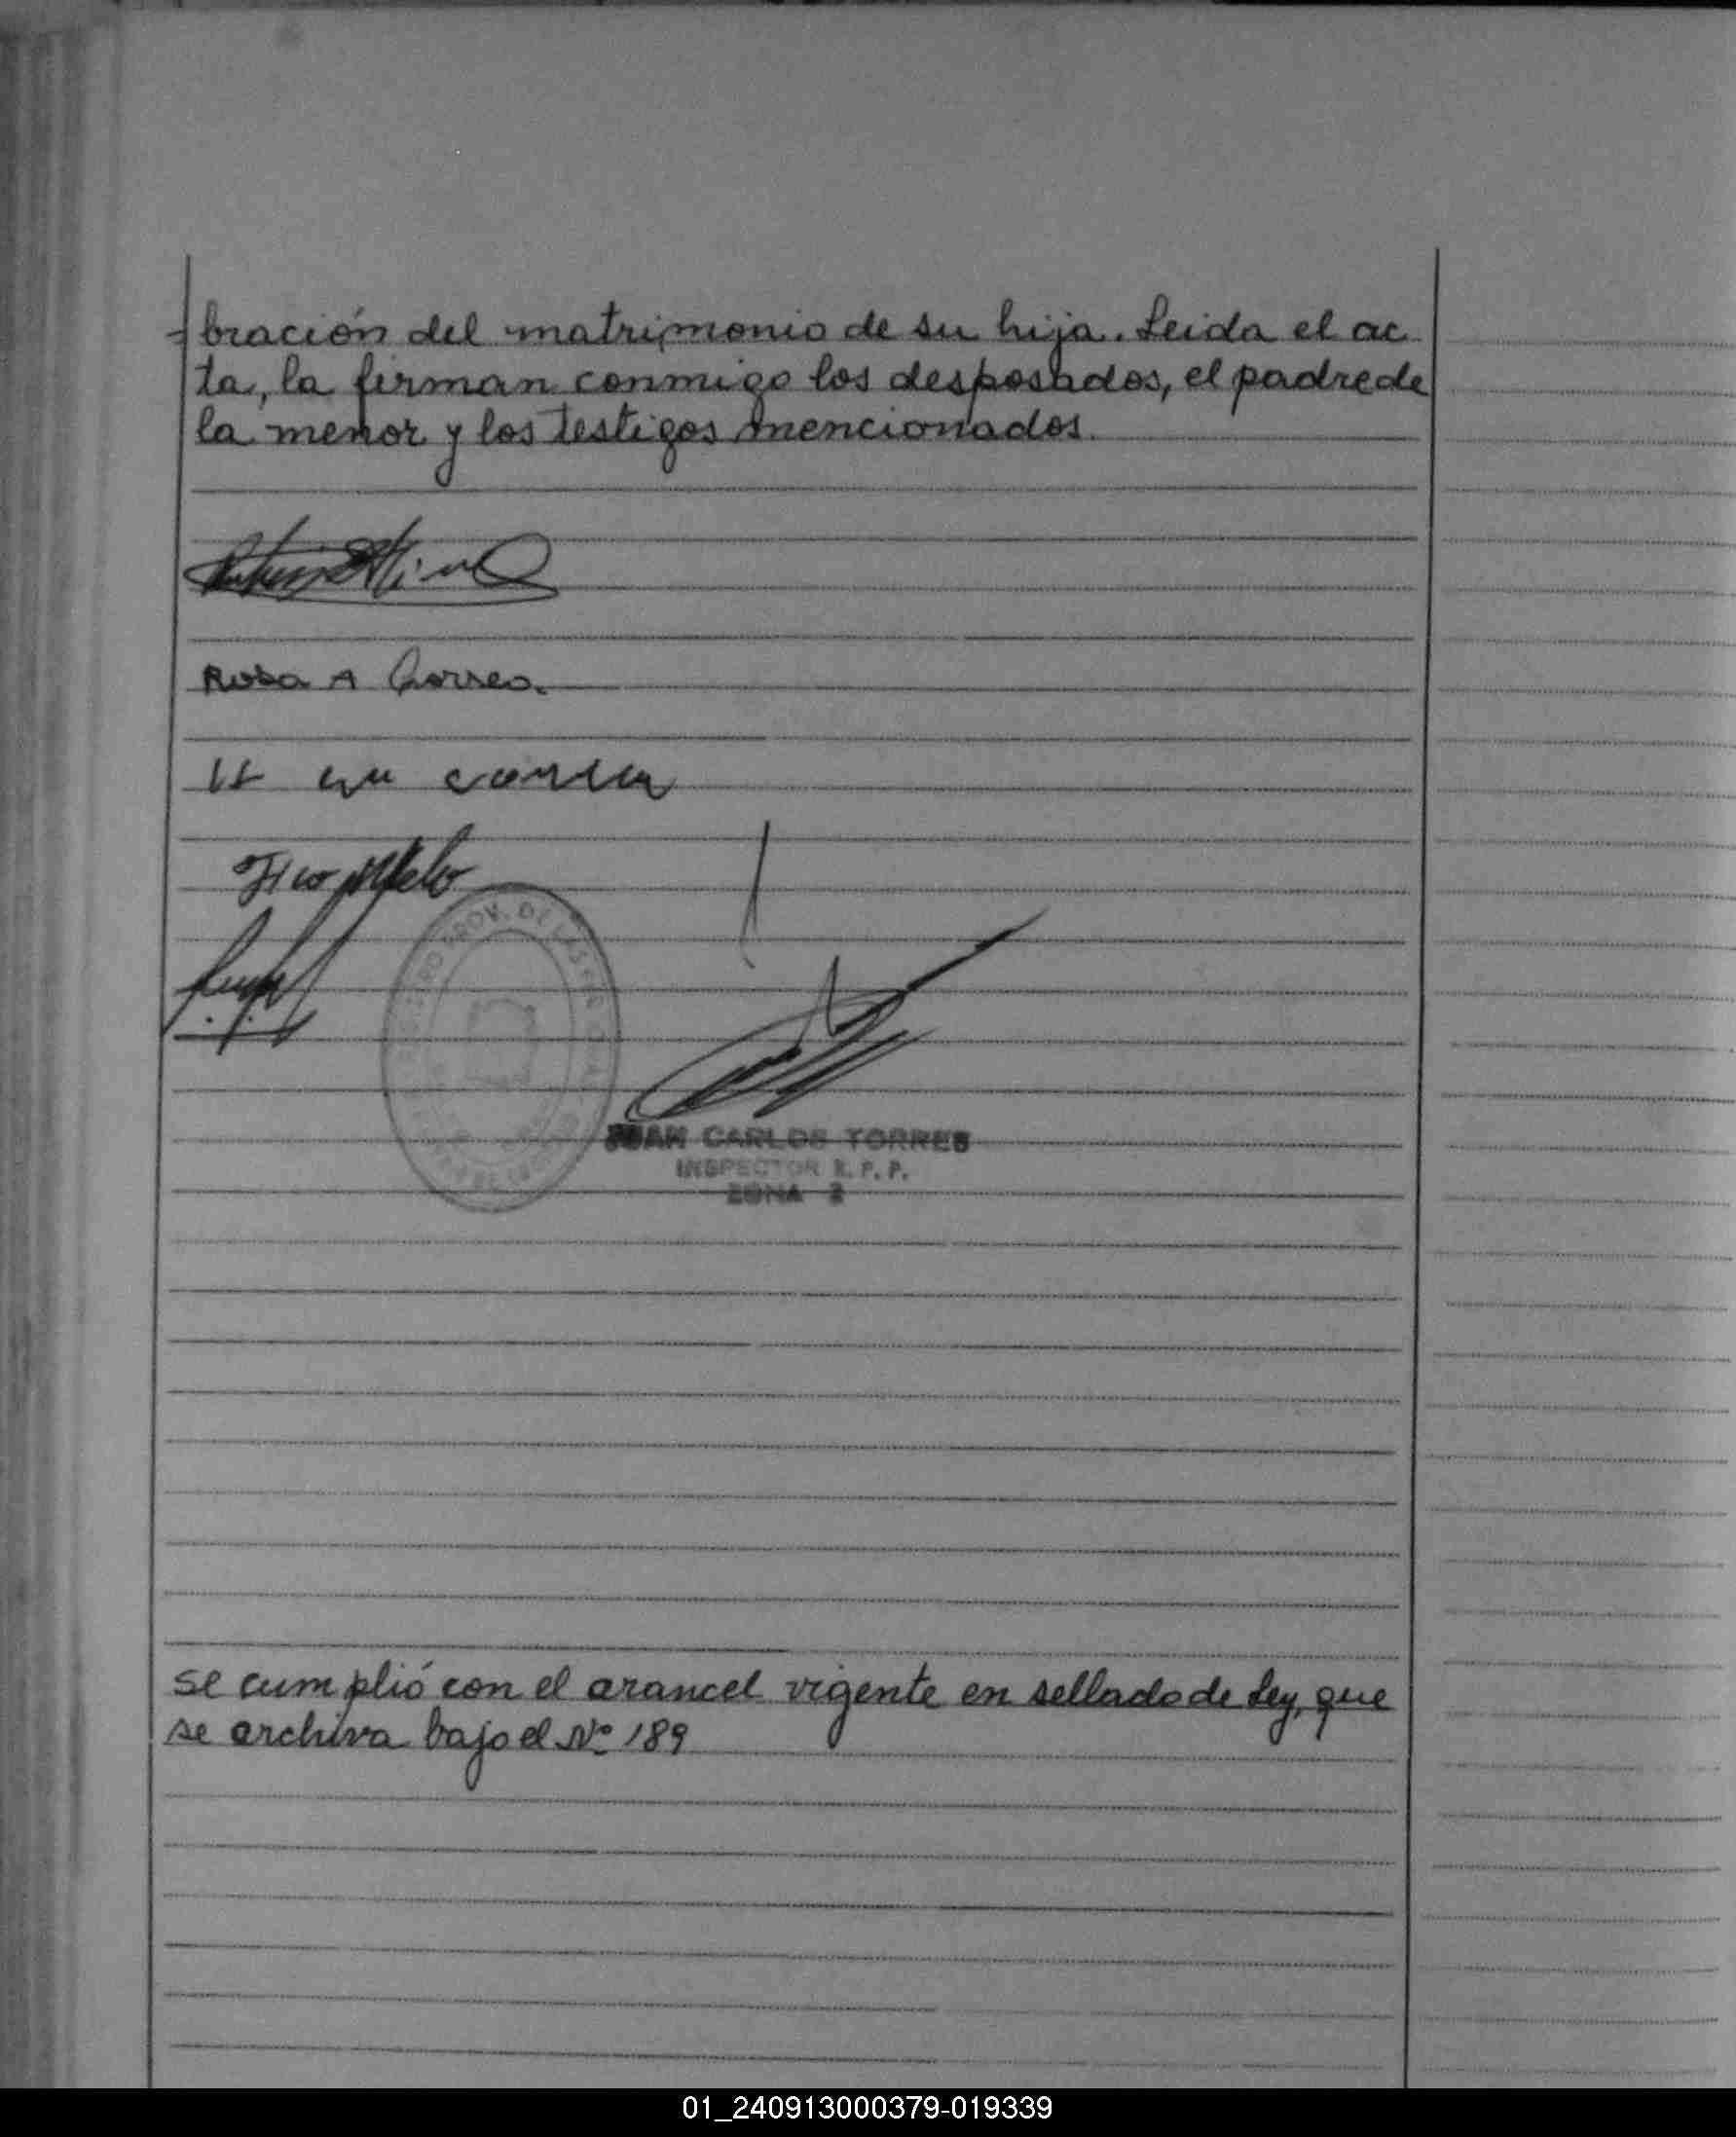 -bración del matrimonio de su hija. Leida el ac
ta, la firman conmigo los desposados, el padre de
la menor y los testigos mencionados.
Rosa A Correa.
PROV. DE
JUAN CARLOS TORRES
INSPECTOR R. P. P.
ZONA 2
se cumplió con el arancel vigente en sellado de Ley, que
se archiva bajo el Nº 189
01_240913000379-019339